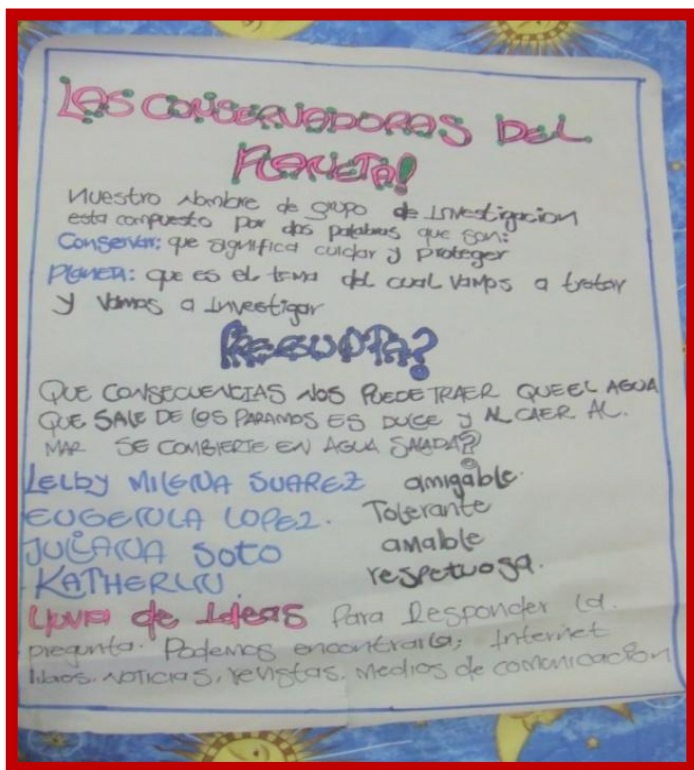 LAS CONSERVADORAS DEL
PLANETA!
Nuestro Nombre de grupo de Investigacion
esta compuesto por dos palabras que son:
Conservar: que significa cuidar y proteger
PLANETA: que es el tema del cual vamos a tratar
y vamos a Investigar
PREGUNTA?
QUE CONSECUENCIAS NOS PUEDE TRAER QUE EL AGUA
QUE SALE DE LOS PARAMOS ES DULCE y AL CAER AL.
MAR SE COMBIERTE EN AGUA SALADA?
LELBY MILENA SUAREZ amigable.
EUGENIA LOPEZ. Tolerante
JULIANA SOTO amable
KATHERIN. respetuosa.
LLUVIA de Ideas Para Responder la.
pregunta. Podemos encontrarla; Internet
libros. NOTICIAS, revistas. Medios de comunicacion